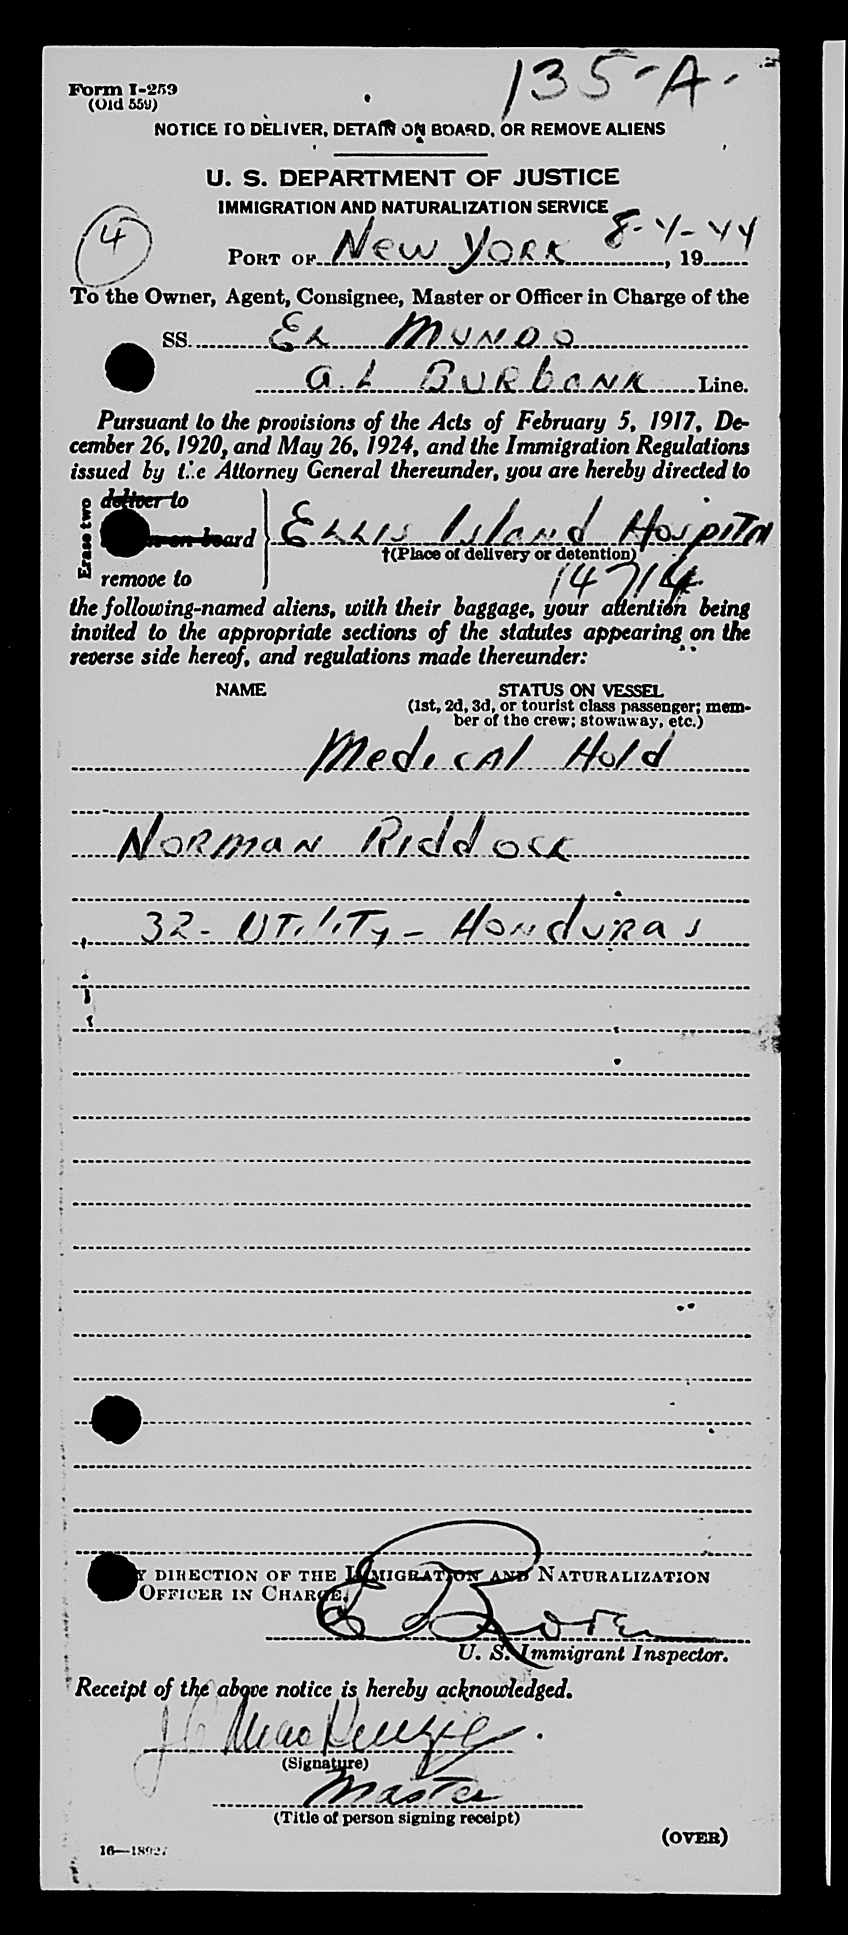 135-A-
Form I-259
(Old 559)
NOTICE TO DELIVER, DETAIN ON BOARD, OR REMOVE ALIENS
U. S. DEPARTMENT OF JUSTICE
IMMIGRATION AND NATURALIZATION SERVICE
4
PORT OF New York 8-4-44, 19
To the Owner, Agent, Consignee, Master or Officer in Charge of the
SS. El Mundo
A. L. Burbank Line.
Pursuant to the provisions of the Acts of February 5, 1917, De-
cember 26, 1920, and May 26, 1924, and the Immigration Regulations
issued by the Attorney General thereunder, you are hereby directed to
Erase two
deliver to
on board Ellis Island Hospital
†(Place of delivery or detention)
remove to 14714
the following-named aliens, with their baggage, your attention being
invited to the appropriate sections of the statutes appearing on the
reverse side hereof, and regulations made thereunder:
NAME STATUS ON VESSEL
(1st, 2d, 3d, or tourist class passenger; mem-
ber of the crew; stowaway, etc.)
Medical Hold
Norman Riddock
32- Utility - Honduras
Y DIRECTION OF THE IMMIGRATION AND NATURALIZATION
OFFICER IN CHARGE.
U. S. Immigrant Inspector.
Receipt of the above notice is hereby acknowledged.
MacKenzie
(Signature)
Master
(Title of person signing receipt)
(OVER)
16—18927